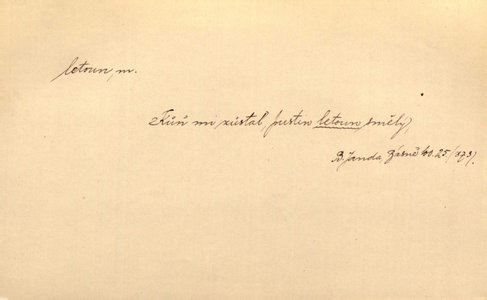 letoun, m.
Kůň mi zůstal, pustin letoun smělý,
B. Janda, Básně 40. 25. (1879).